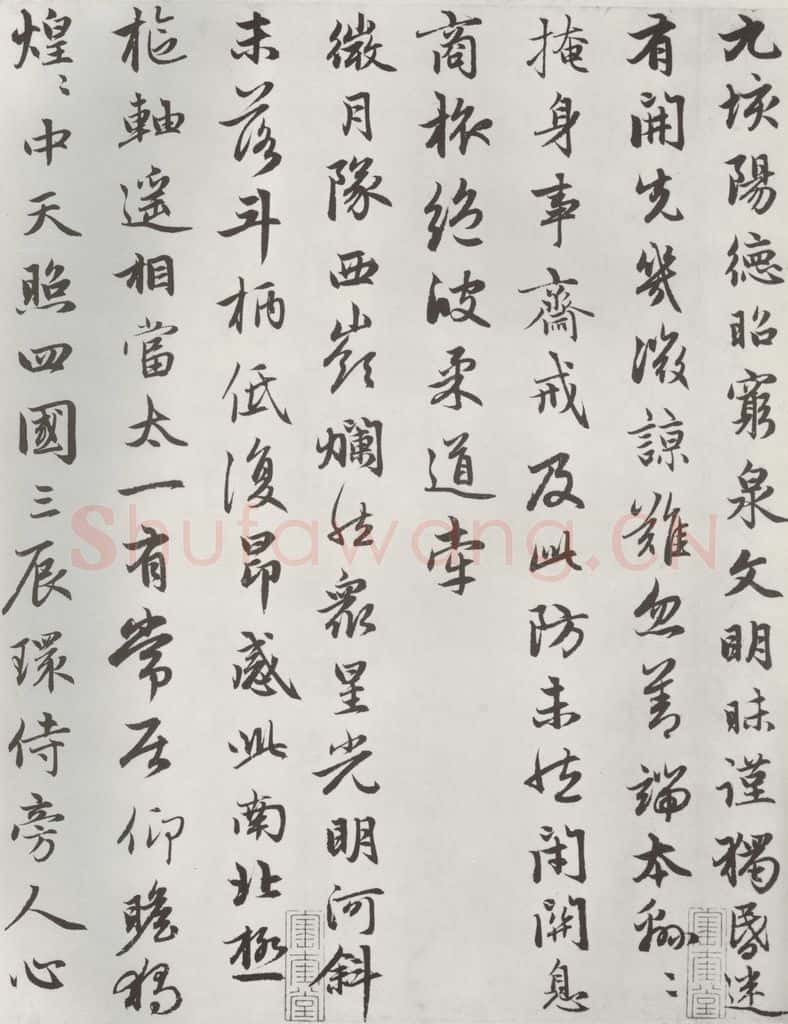 九垓陽德昭窮泉文明昧謹獨昏迷
有開先幾微諒難忽善端本緜〻
掩身事齋戒及此防未然閉關息
商旅絕彼柔道牽
微月隊西嶺爛然衆星光明河斜
未落斗柄低復昂感此南北極
樞軸遥相當太一有常居仰瞻獨
煌〻中天照四國三辰環侍旁人心
Shufawang.CN